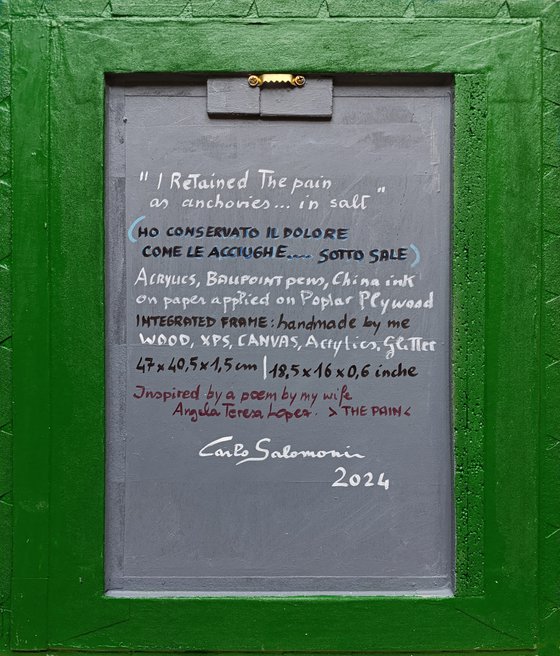 " I Retained The pain
as anchovies... in salt "
(HO CONSERVATO IL DOLORE
COME LE ACCIUGHE.... SOTTO SALE)
ACRYLICS, BALLPOINT pens, China ink
on paper applied on Poplar Plywood
INTEGRATED FRAME: handmade by me
WOOD, XPS, CANVAS, Acrylics, Glitter
47x40,5x1,5 cm | 18,5x16x0,6 inche
Inspired by a poem by my wife
Angela Teresa Lopez. > THE PAIN <
Carlo Salomoni
2024